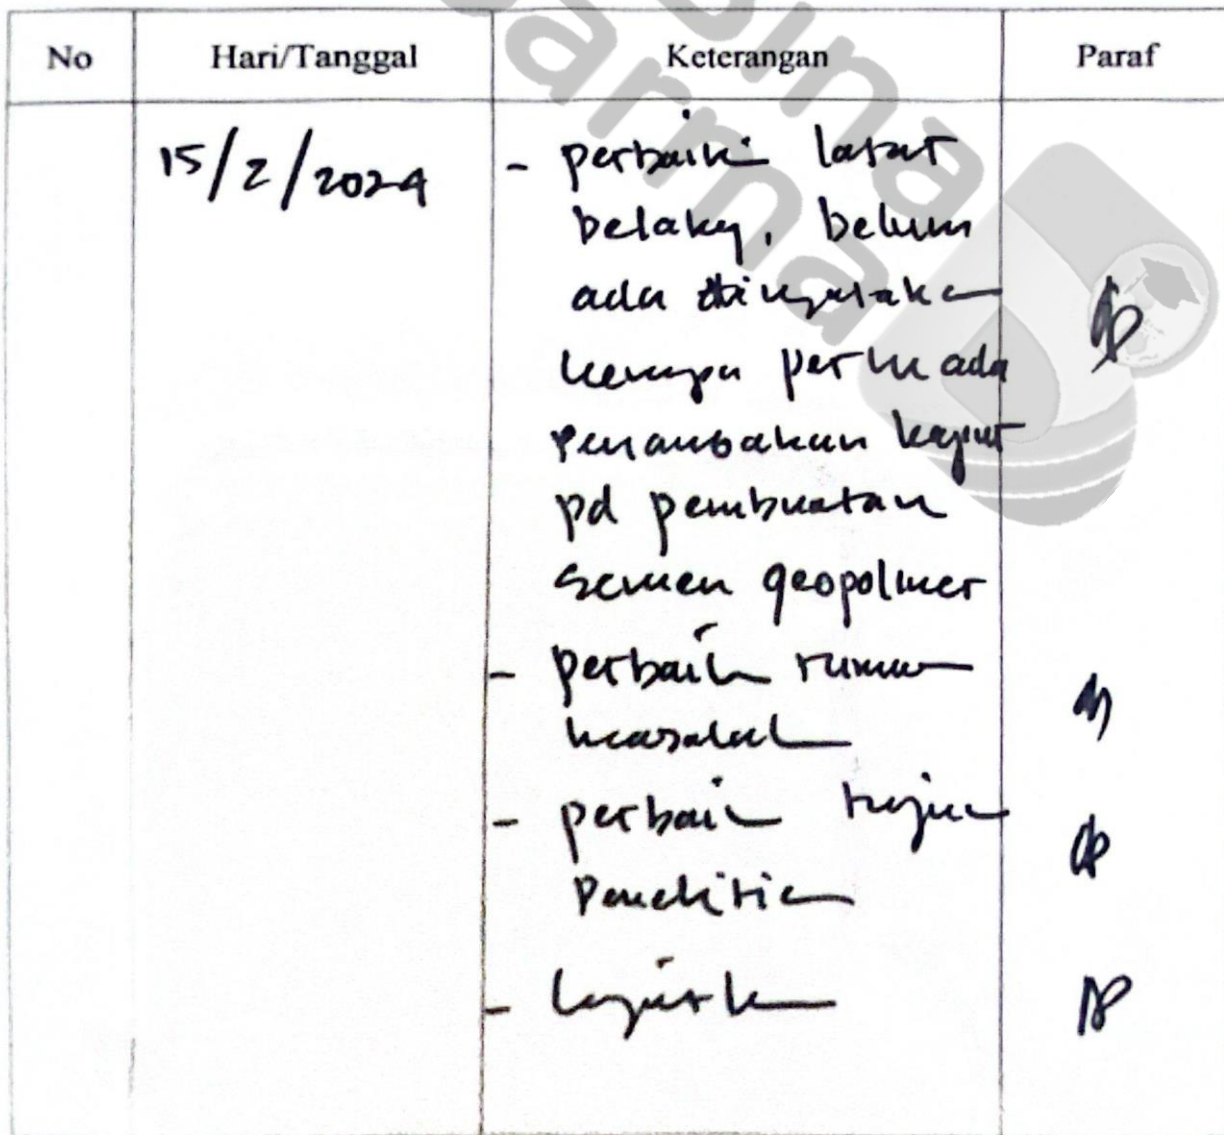 No Hari/Tanggal Keterangan Paraf
15/2/2024 - perbaiki latar
belakg, belum
ada
kenapa perlu ada
penambahan
pd pembuatan
semen geopolimer
- perbaiki rumusan
masalah
- perbaiki tujuan
Penelitian
- lanjutkan
bina
darma